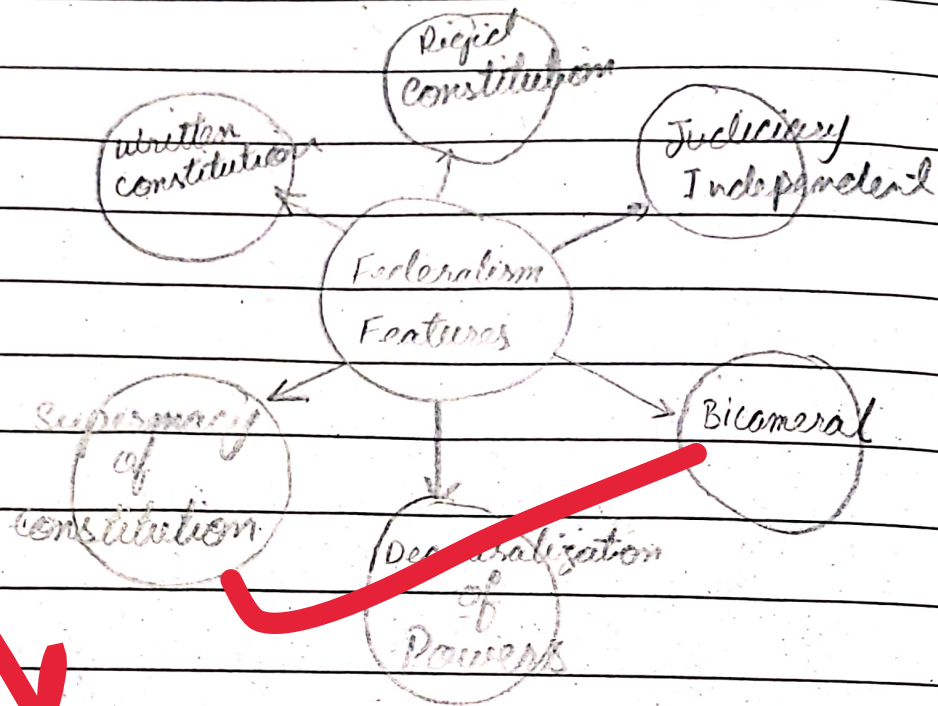 Rigid
Constitution
written
constitution
Judiciary
Independent
Federalism
Features
Supermacy
of
constitution
Bicameral
Decentralization
of
Powers